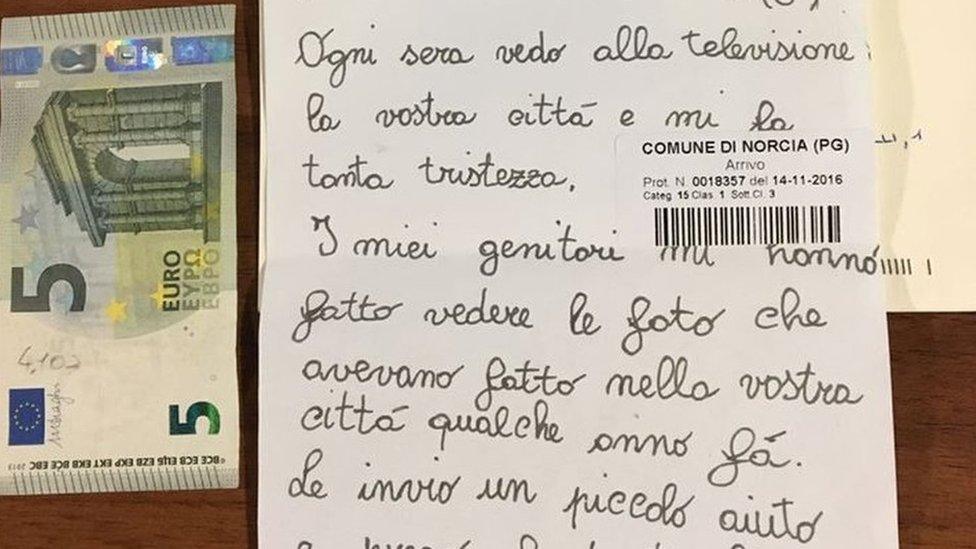 Ogni sera vedo alla televisione
la vostra cittá e mi fa
tanta tristezza.
I miei genitori mi hannó
fatto vedere le foto che
avevano fatto nella vostra
cittá qualche anno fá.
Le invio un piccolo aiuto
COMUNE DI NORCIA (PG)
Arrivo
Prot. N. 0018357 del 14-11-2016
Categ 15 Clas. 1 Sott.Cl. 3
5
EURO
ΕΥΡΩ
ЕВРО
5
BCE ECB ЕЦБ EZB EKP EKT EKB BĊE EBC 2013